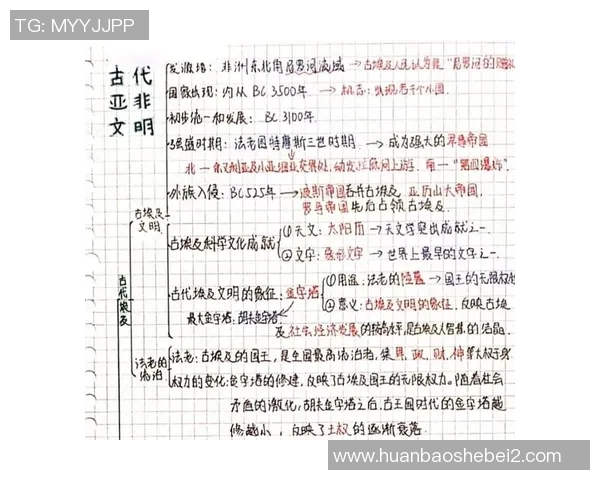 TG: MYYJJPP
古代
亚非
文明
发源地：非洲东北角尼罗河流域 → 古埃及人民认为是“尼罗河的赠礼
国家出现：约从BC 3500年 → 标志：出现若干个小国
初步统一和发展：BC 3100年
强盛时期：法老图特摩斯三世时期 → 成为强大的军事帝国
北
外族入侵：BC525年 → 波斯帝国吞并古埃及 亚历山大帝国，
罗马帝国先后占领古埃及
古埃及
文明
古埃及科学文化成就
①天文：太阳历 → 天文学突出成就之一
②文字：象形文字 → 世界上最早的文字之一
古代埃及
古代埃及文明的象征：金字塔
①用途：法老的陵墓 → 国王的无限权
最大金字塔：胡夫金字塔
②意义：古埃及文明的象征，反映古埃
及社会经济发展的较高水平，是古埃及人智慧的结晶
法老的
统治
法老：古埃及的国王，是全国最高统治者，集军，政，财，神等大权于身
权力的变化：金字塔的修建，反映了古埃及国王的无限权力。随着社会
矛盾的激化，胡夫金字塔之后，古王国时代的金字塔越
修越小，反映了王权的逐渐衰落
www.huanbaoshebei2.com